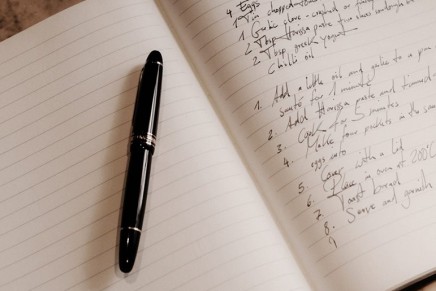 4 Eggs
1 Tin chopped
1 Garlic clove - crushed or finely
2 Tbsp Harissa paste
2 Tbsp greek yogurt
Chilli oil
1. Add a little oil and garlic to a pan
sauté for 1 minute
2. Add Harissa paste and
3. Cook for 5 minutes
4. Make four pockets in the
eggs into
5. Cover with a lid
6. Place in oven at 200°C
7. Toast bread
8. Serve and garnish